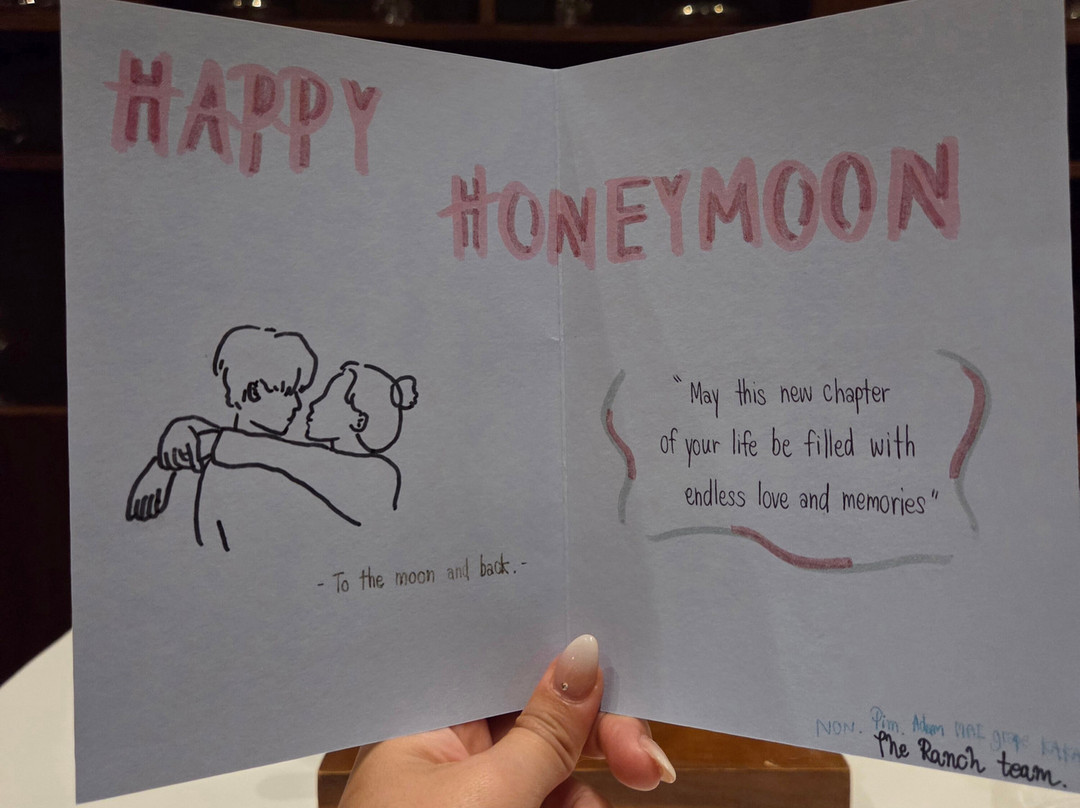 HAPPY
HONEYMOON
"May this new chapter
of your life be filled with
endless love and memories"
- To the moon and back. -
NON. Pim. Adam MAI grape
The Ranch team.